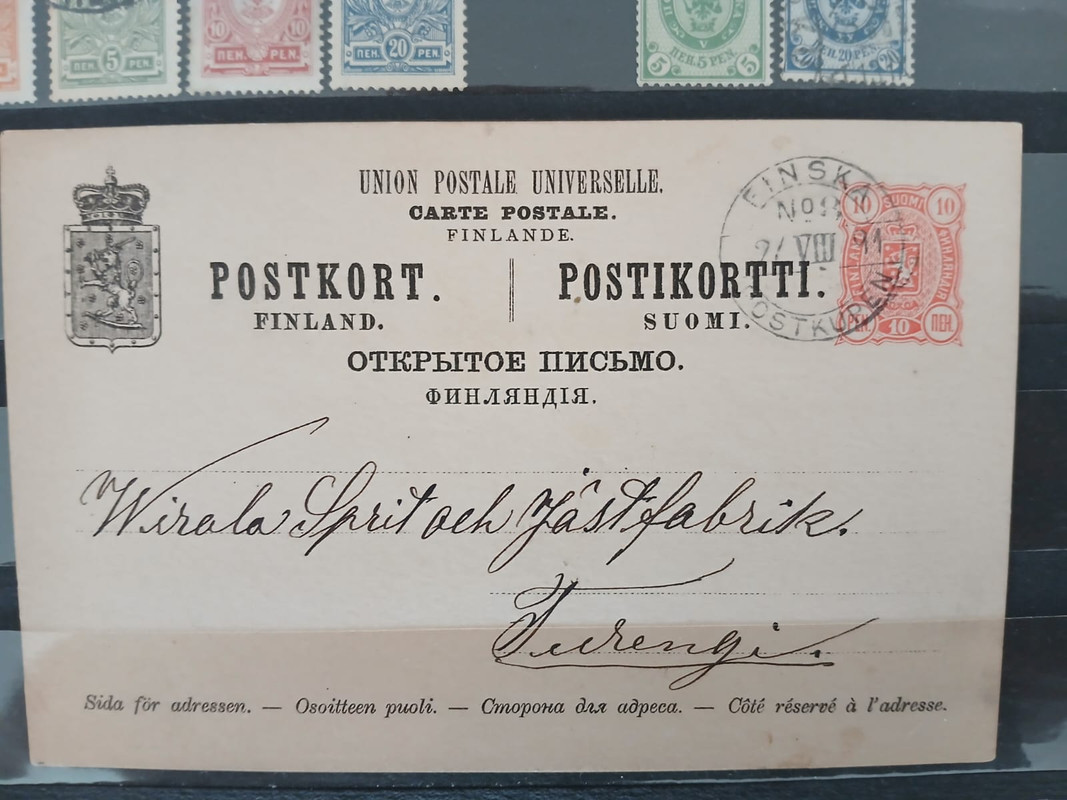 5
10 10
ПЕН. PEN.
20
ПЕН. PEN.
5 5
ПЕН. 5 PEN.
ПЕН. 20 PEN.
UNION POSTALE UNIVERSELLE.
CARTE POSTALE.
FINLANDE.
POSTKORT. POSTIKORTTI.
FINLAND. SUOMI.
ОТКРЫТОЕ ПИСЬМО.
ФИНЛЯНДІЯ.
FINSKA
No
VIII 91
POSTKUPEN
10 SUOMI 10
PEN. 10 ПЕН.
Wirala Sprit och Jästfabrik.
Turengi.
Sida för adressen. — Osoitteen puoli. — Сторона для адреса. — Côté réservé à l'adresse.